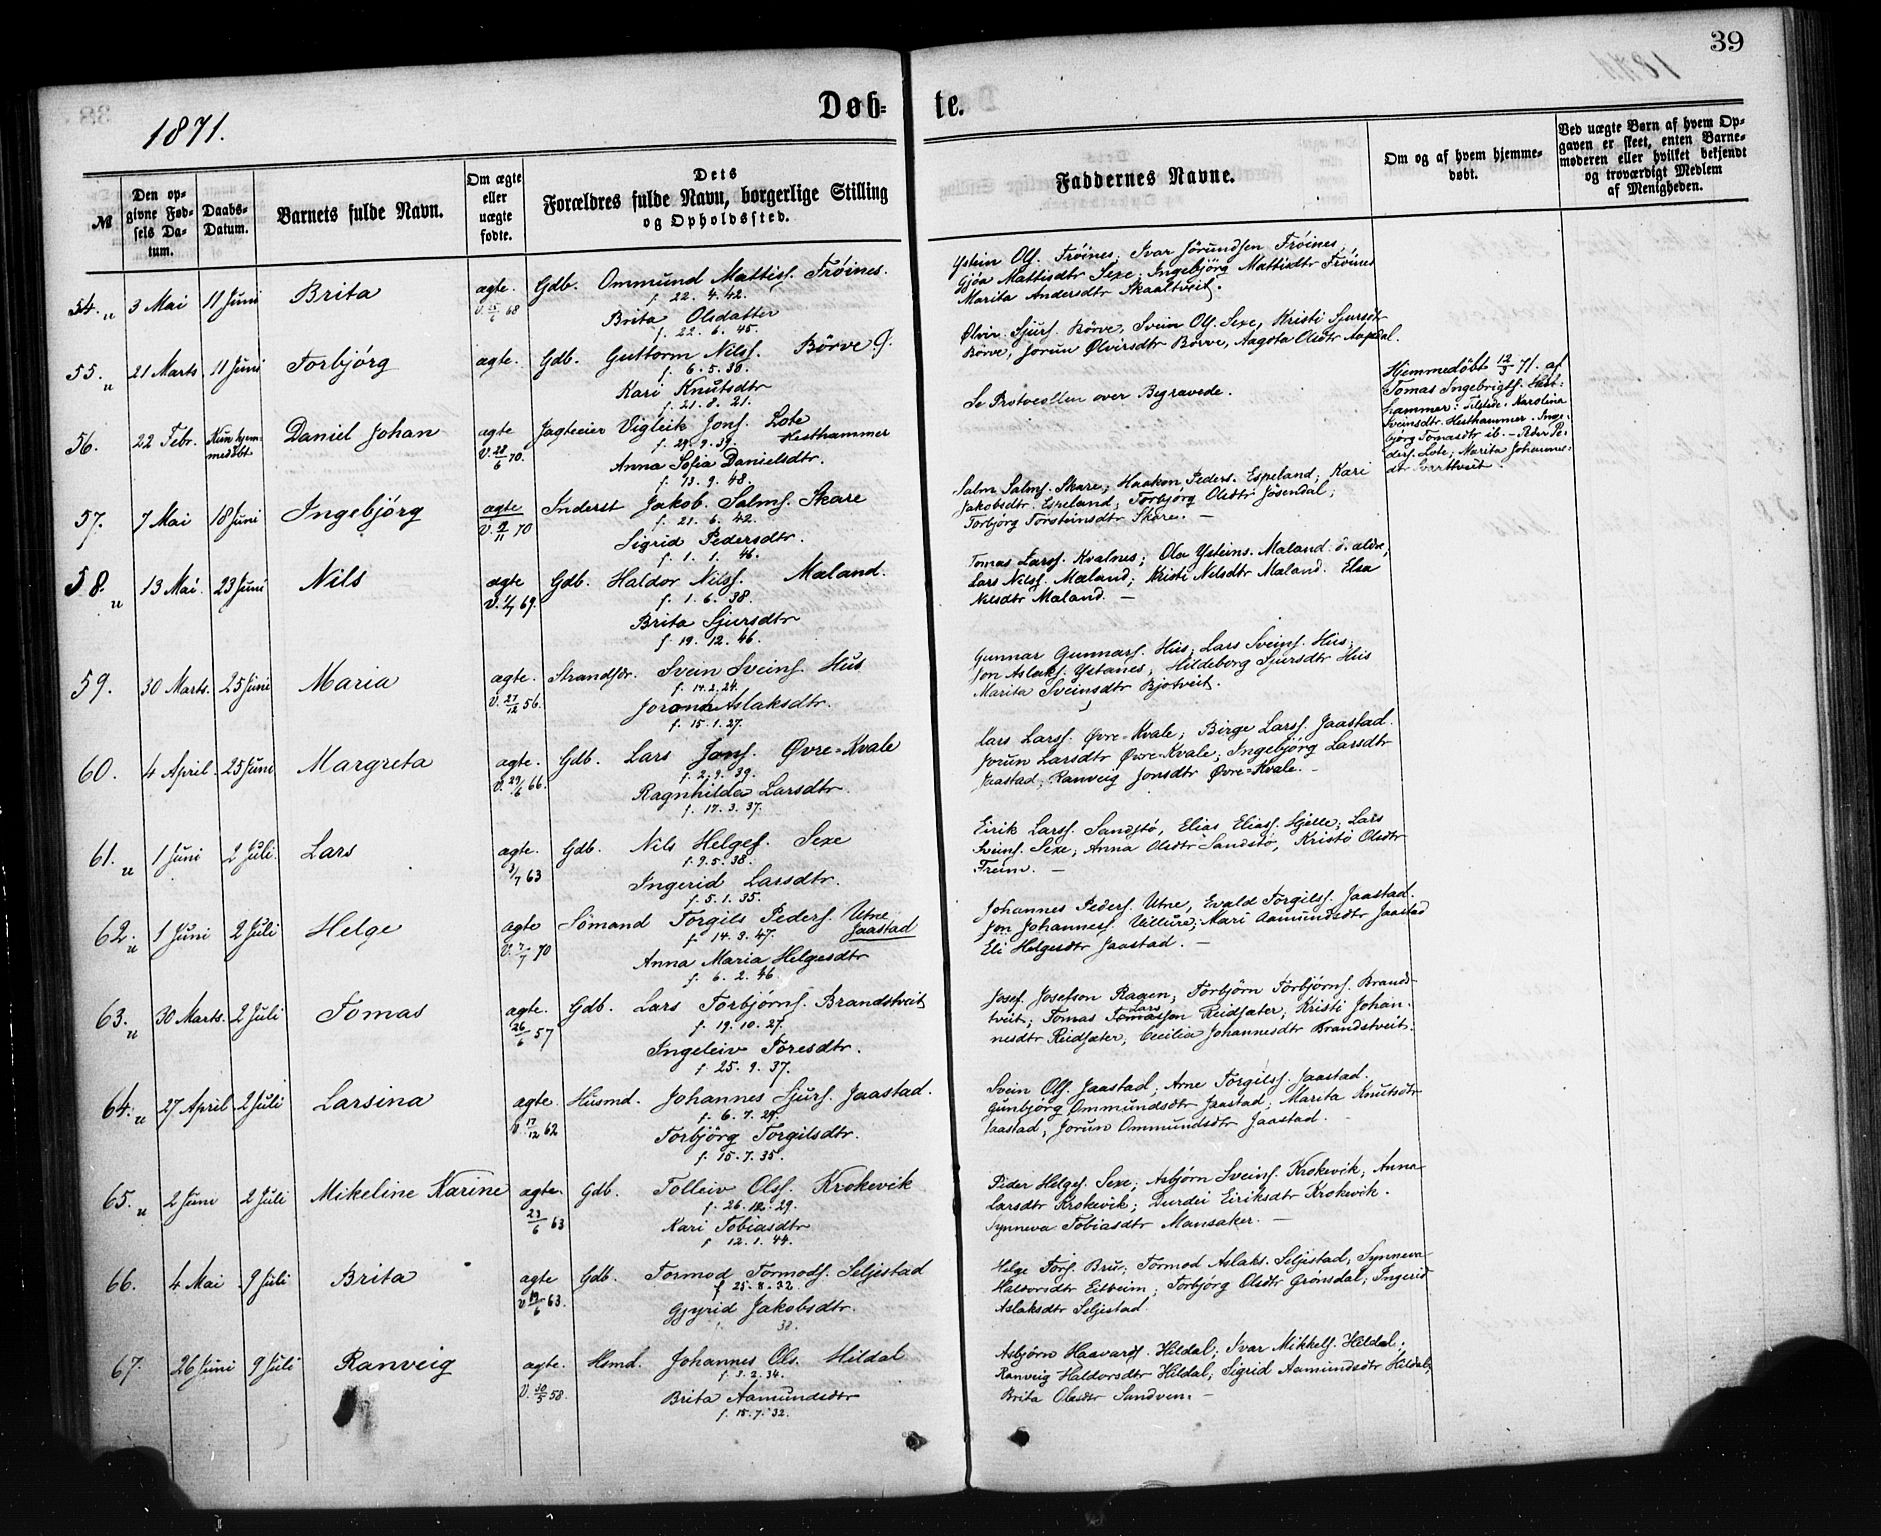 39
1871.
Døb-te.
№
Den opgivne Fødsels Datum.
Daabs-Datum.
Barnets fulde Navn.
Om ægte eller uægte fødte.
Dets Forældres fulde Navn, borgerlige Stilling og Opholdssted.
Faddernes Navne.
Om og af hvem hjemmedøbt.
Ved uægte Børn af hvem Opgaven er skeet, enten Barnemoderen eller hvilket bekjendt og troværdigt Medlem af Menigheden.
54. u 3 Mai 11 Juni Brita ægte. Gdb. Ommund Mattisf. Frøines.
f. 22. 4. 42.
Brita Olsdatter
f. 22. 6. 45.
Ystein Olf. Frøines; Ivar Jörundsen Frøines,
Gjøa Mattisdtr Sexe; Ingebjörg Mattisdtr Frøines
Marita Andersdtr Skaaltveit.
55. u 21 Marts 11 Juni Torbjörg ægte. Gdb. Guttorm Nilsf. Börve
f. 6. 5. 30.
Kari Knutsdtr
f. 21. 8. 21.
Ølvir Sjurf. Börve, Svein Olf. Sexe, Kristi Sjursdtr
Börve, Jorun Ølvirsdtr Börve, Aagota Olsdtr Aapdal.
56. 22 Febr. Kun hjemmedøbt Daniel Johan ægte Jagteeier Vigleik Jonf. Lote
V. 28/6 70. f. 29. 9. 39. Hesthammer
Anna Sofia Danielsdtr.
f. 13. 9. 48.
Se Protocollen over Begravede.
Hjemmedøbt 12/3 71. af
Tomas Ingebrigtf. Hest-
hammer: Tilstede: Karolina
Sveinsdtr. Hesthammer. Inge-
björg Tomasdtr ib. - Peder Pe-
derf. Lote; Marita Johannes-
dtr Svartveit.
57. 7 Mai 18 Juni Ingebjörg ægte Inderst Jakob Salmf. Skare
V. 9/11 70 f. 21. 6. 42.
Sigrid Pedersdtr.
f. 1. 1. 46.
Salm Salmf. Skare; Haakon Peders. Espeland; Kari
Jakobsdtr. Espeland; Torbjörg Olsdtr Jösendal;
Torbjörg Torsteinsdtr Skare. -
58. u 13 Mai. 23 Juni Nils ægte Gdb. Haldor Nilsf. Mæland.
69. f. 1. 6. 38.
Brita Sjursdtr
f. 19. 12. 46.
Tomas Larsf. Kvalnes; Ola Ysteins. Mæland d. ældre;
Lars Nilsf. Mæland; Kristi Nilsdtr Mæland. Elsa
Nilsdtr Mæland. -
59. 30 Marts. 25 Juni Maria ægte. Strandsdr. Svein Sveinf. Hus
V. 27/12 56. f. 14. 2. 24.
Aslaksdtr.
f. 15. 1. 27.
Gunnar Gunnarf. Hus; Lars Sveinf. Hus;
Jon Aslakf. Ystanes; Hildeborg Sjursdtr Hus
Marita Sveinsdtr Bjotveit.
60. 4 April. 25 Juni Margreta ægte. Gdb. Lars Jonf. Øvre-Kvale
V. 29/6 66. f. 2. 9. 39.
Ragnhilda Larsdtr.
f. 17. 3. 37.
Lars Larsf. Øvre-Kvale; Birge Larsf. Jaastad.
Jorun Larsdtr Øvre-Kvale; Ingebjörg Larsdtr
Jaastad; Ranveig Jonsdtr Øvre-Kvale. -
61. u 1 Juni 2 Juli Lars ægte. Gdb. Nils Helgef. Sexe
3/7 63 f. 9. 5. 38.
Ingerid Larsdtr.
f. 5. 1. 35.
Eirik Larsf. Sandstø, Elias Eliasf. Hjelle; Lars
Sveinf. Sexe; Anna Olsdtr Sandstø, Kristi Olsdtr
Freim. -
62. u 1 Juni 2 Juli Helge ægte Sömand Torgils Pederf. Utne
V. 7/7 70 f. 14. 3. 47. Jaastad
Anna Maria Helgesdtr
f. 6. 2. 46
Johannes Pederf. Utne, Evald Torgilsf. Jaastad.
Jon Johannesf. Villure; Mari Aamundsdtr Jaastad
Eli Helgesdtr Jaastad. -
63. u 30 Marts. 2 Juli Tomas ægte. Gdb. Lars Torbjörnf. Brandstveit
26/6 57 f. 19. 10. 27.
Ingeleiv Toresdtr.
f. 25. 9. 37.
Josef Josefson Ragen; Torbjörn Torbjörnf. Brands-
tveit; Tomas Lars Reidsæter; Kristi Johan-
nesdtr Reidsæter; Cecilia Johannesdtr Brandstveit.
64. u 27 April 2 Juli Larsina ægte. Husmd. Johannes Sjurf. Jaastad.
V. 17/12 62 f. 6. 7. 29.
Torbjörg Torgilsdtr.
f. 15. 7. 35.
Svein Olf. Jaastad; Arne Torgilsf. Jaastad.
Gunbjörg Ommundsdtr Jaastad; Marita Knutsdtr
Jaastad, Jorun Ommundsdtr Jaastad.
65. u 2 Juni 2 Juli Mikeline Karine ægte. Gdb. Tolleiv Olsf. Krokevik
23/6 63 f. 26. 12. 29.
Kari Tobiasdtr
f 12. 1. 44.
Peder Helgef. Sexe; Asbjørn Sveinf. Krokevik; Anna
Larsdtr Krokevik; Durdei Eiriksdtr Krokevik.
Synneva Tobiasdtr Mansaker. -
66. 4 Mai 9 Juli Brita ægte Gdb. Tormod Tormodf. Seljestad
V. 19/6 63. f 25. 8. 32.
Gjyrid Jakobsdtr.
38.
Helge Torf. Bru; Tormod Aslaks. Seljestad; Synneva
Haldorsdtr Eitheim; Torbjörg Olsdtr Grönsdal; Ingerid
Aslaksdtr Seljestad.
67. 26 Juni 9 Juli Ranveig ægte. Hsmd. Johannes Ols. Hildal
V. 30/5 58. f. 3. 2. 34.
Brita Aamundsdtr
f. 15. 7. 32.
Asbjørn Haavardf. Hildal; Ivar Mikkelf. Hildal;
Ranveig Haldorsdtr Hildal; Sigrid Aamundsdtr Hildal;
Brita Olsdtr Sandven. -